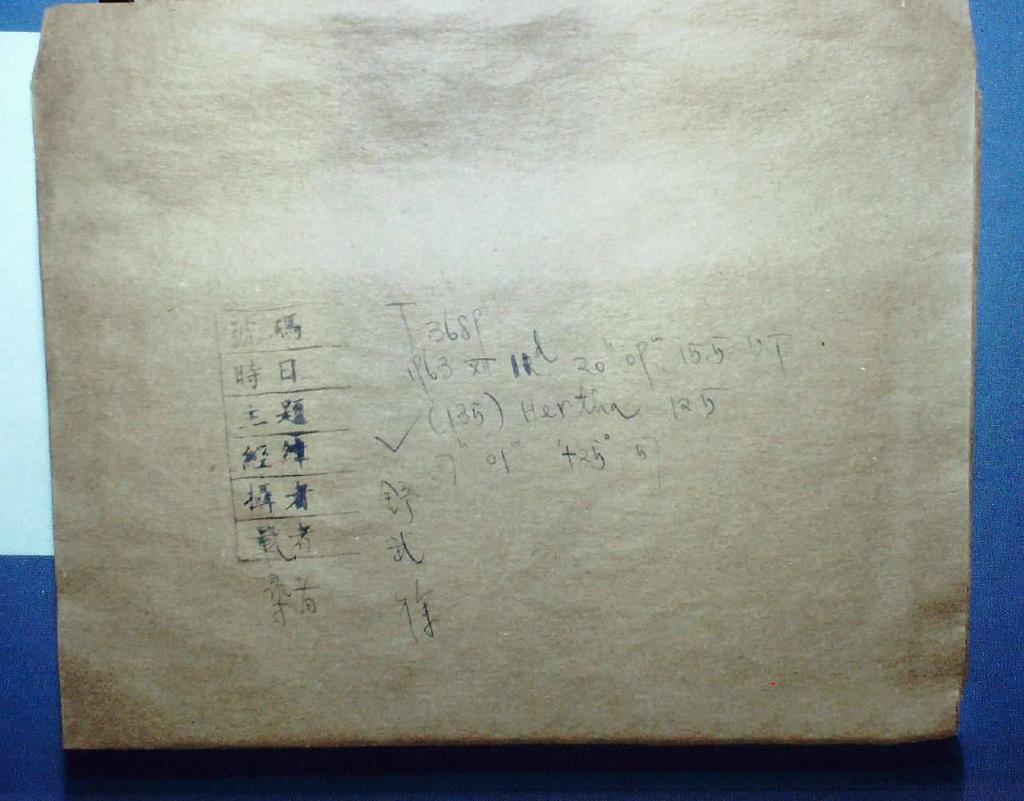 號碼 T 3689
時日 1963 XII 11d 20h 09m 15.5 UT
主題 (135) Hertha 12.5
經緯 7h 01m +25° 57
攝者 野
載者 武
徐